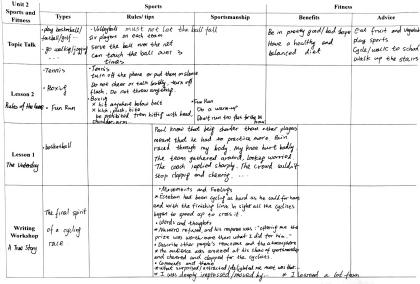 Unit 2
Sports and
Fitness
Sports
Fitness
Types
Rules/ tips
Sportsmanship
Benefits
Advice
Topic Talk
play basketball/
football/golf...
go walking/jogging
Volleyball must not let the ball fall
six players on each team
serve the ball over the net
can touch the ball over 3
times
Be in pretty good/bad shape
Have a healthy and
balanced diet
Eat fruit and vegetables
play sports
Cycle/walk to school
walk up the stairs
Lesson 2
Rules of the Game
Tennis
Boxing
Fun Run
Tennis
turn off the phone or put them on silence
Do not cheer or talk loudly, turn off
flash. Do not throw anything.
Boxing
x hit anybody below belt
x kick, push, bite
be prohibited from hitting with head,
shoulder, arm
Fun Run
Do a warm-up
Don't run too fast for the
Lesson 1
The Underdog
basketball
Paul knew that being shorter than other players
meant that he had to practise more. Pain
raced through my body. My knee hurt badly.
The team gathered around, looking worried.
The coach replied sharply. The crowd couldn't
stop clapping and cheering ....
Writing
Workshop
A True Story
The final spirit
of a cycling
race
Movements and Feelings
Esteban had been cycling as hard as he could for hours
and with the finishing line in sight all the cyclists
began to speed up to cross it.
words and thoughts
Navarro refused, and his response was: "offering me the
prize was worth more than what I did for him."
Describe other people's reactions and the atmosphere
the audience was amazed at his show of sportsmanship
and cheered and clapped for the cyclists.
Comments and theme
what surprised/attracted/delighted me most was that...
I was deeply impressed/moved by...
I learned a lot from